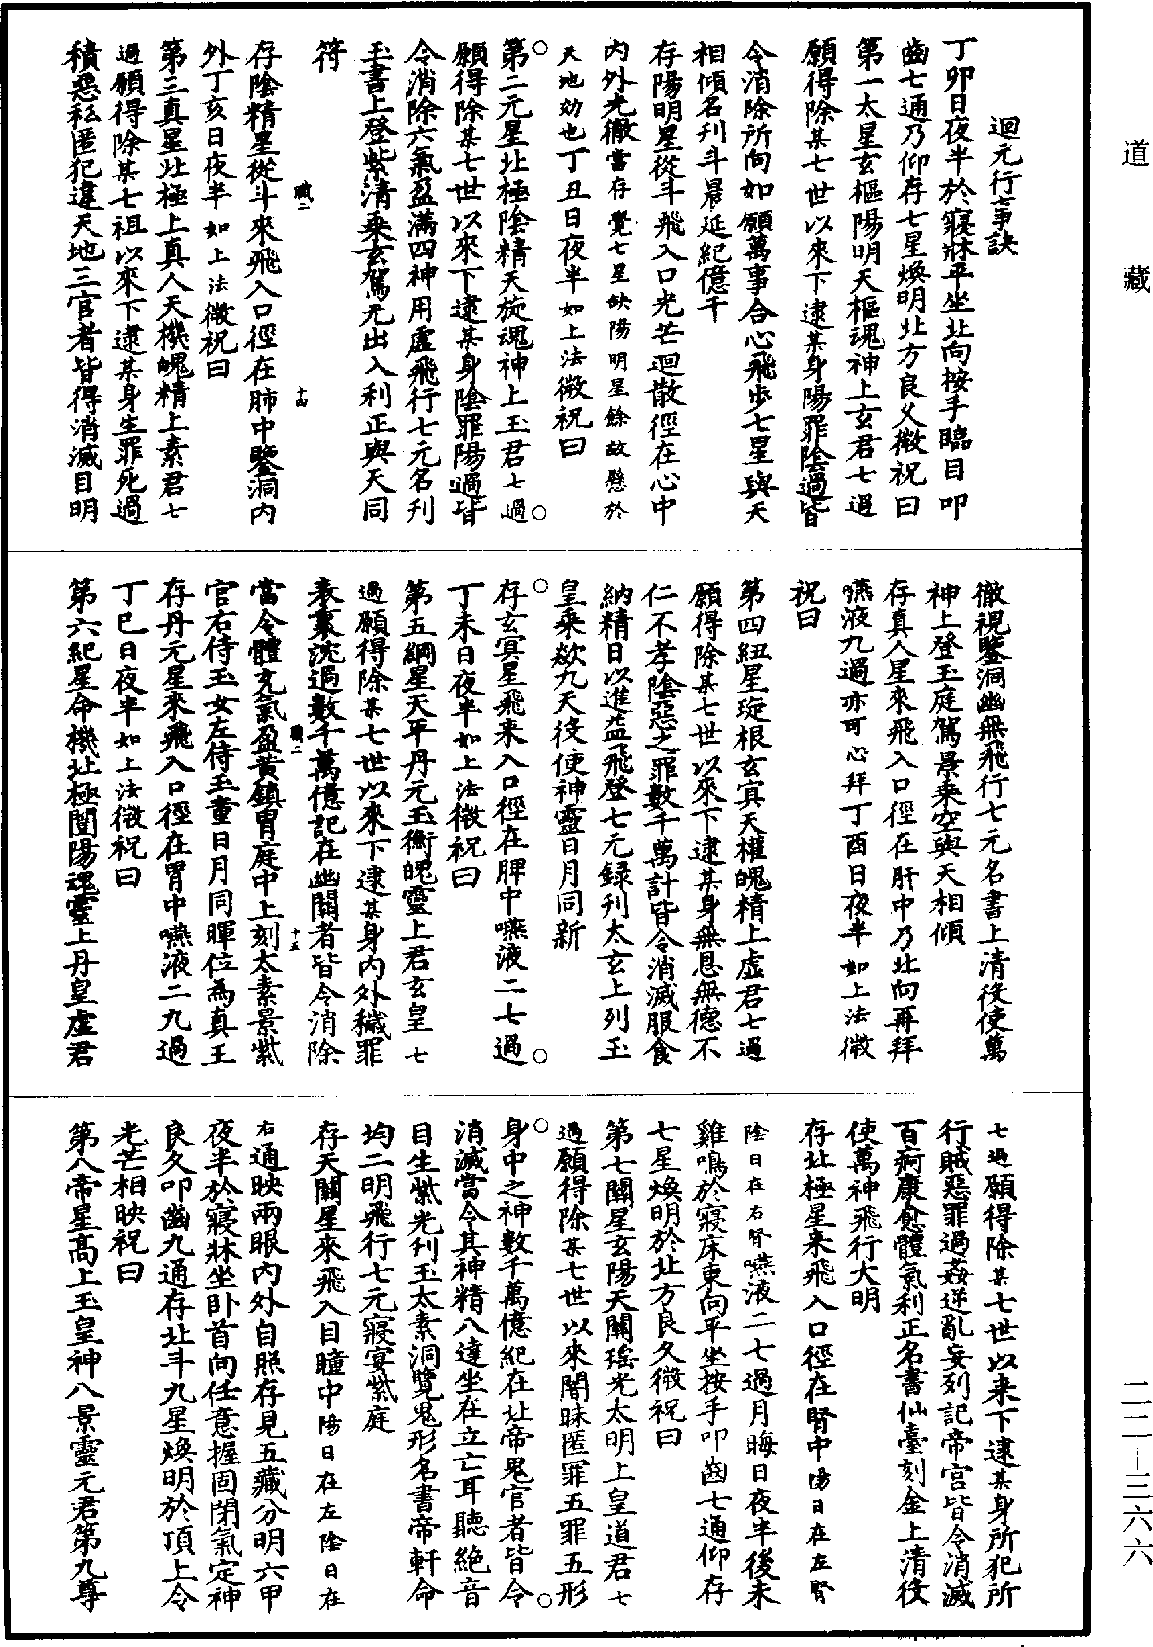 道藏
迴元行事訣
丁卯日夜半於寢牀平坐北向按手臨目叩
齒七通乃仰存七星煥明北方良久微祝曰
第一太星玄樞陽明天樞魂神上玄君七過
願得除某七世以來下逮某身陽罪陰過皆
令消除所向如願萬事合心飛步七星與天
相傾名刋斗晨延紀億千
存陽明星從斗飛入口光芒迴散徑在心中
內外光徹當存覺七星缺陽明星餘故懸於
天地効也丁丑日夜半如上法微祝曰
第二元星北極陰精天旋魂神上玉君七過
願得除某七世以來下逮某身陰罪陽過皆
令消除六氣盈滿四神用虛飛行七元名刋
玉書上登紫清乘玄駕元出入利正與天同
符
職二
十四
存陰精星從斗來飛入口徑在肺中鑒洞內
外丁亥日夜半如上法微祝曰
第三真星北極上真人天機魄精上素君七
過願得除某七祖以來下逮某身生罪死過
積惡私匿犯違天地三官者皆得消滅目明
徹視鑒洞幽無飛行七元名書上清役使萬
神上登玉庭駕景乘空與天相傾
存真人星來飛入口徑在肝中乃北向再拜
嚥液九過亦可心拜丁酉日夜半如上法微
祝曰
第四紐星璇根玄冥天權魄精上虛君七過
願得除某七世以來下逮某身無恩無德不
仁不孝陰惡之罪數千萬計皆令消滅服食
納精日以進益飛登七元録刋太玄上列玉
皇乘欻九天役使神靈日月同新
存玄冥星飛來入口徑在脾中嚥液二七過
丁未日夜半如上法微祝曰
第五綱星天平丹元玉衡魄靈上君玄皇七
過願得除某七世以來下逮某身內外穢罪
表裏沈過數千萬億記在幽關者皆令消除
職二
十五
當令體充氣盈黃鎮胃庭中上刻太素景紫
官右侍玉女左侍玉童日月同暉位為真王
存丹元星來飛入口徑在胃中嚥液二九過
丁巳日夜半如上法微祝曰
第六紀星命機北極闓陽魂靈上丹皇虛君
七過願得除某七世以來下逮某身所犯所
行賊惡罪過姦逆亂妄列記帝宮皆令消滅
百痾康愈體氣利正名書仙臺刻金上清役
使萬神飛行大明
存北極星來飛入口徑在腎中陽日在左腎
陰日在右腎嚥液二七過月晦日夜半後未
雞鳴於寢床東向平坐按手叩齒七通仰存
七星煥明於北方良久微祝曰
第七關星玄陽天關瑤光太明上皇道君七
過願得除某七世以來闇昧匿罪五罪五形
身中之神數千萬億紀在北帝鬼官者皆令
消滅當令其神精八達坐在立亡耳聽絶音
目生紫光刋玉太素洞覽鬼形名書帝軒命
均二明飛行七元寢宴紫庭
存天關星來飛入目瞳中陽日在左陰日在
右通映兩眼內外自照存見五藏分明六甲
夜半於寢牀坐卧首向任意握固閉氣定神
良久叩齒九通存北斗九星煥明於頂上令
光芒相映祝曰
第八帝星高上玉皇神八景靈元君第九尊
二二－三六六